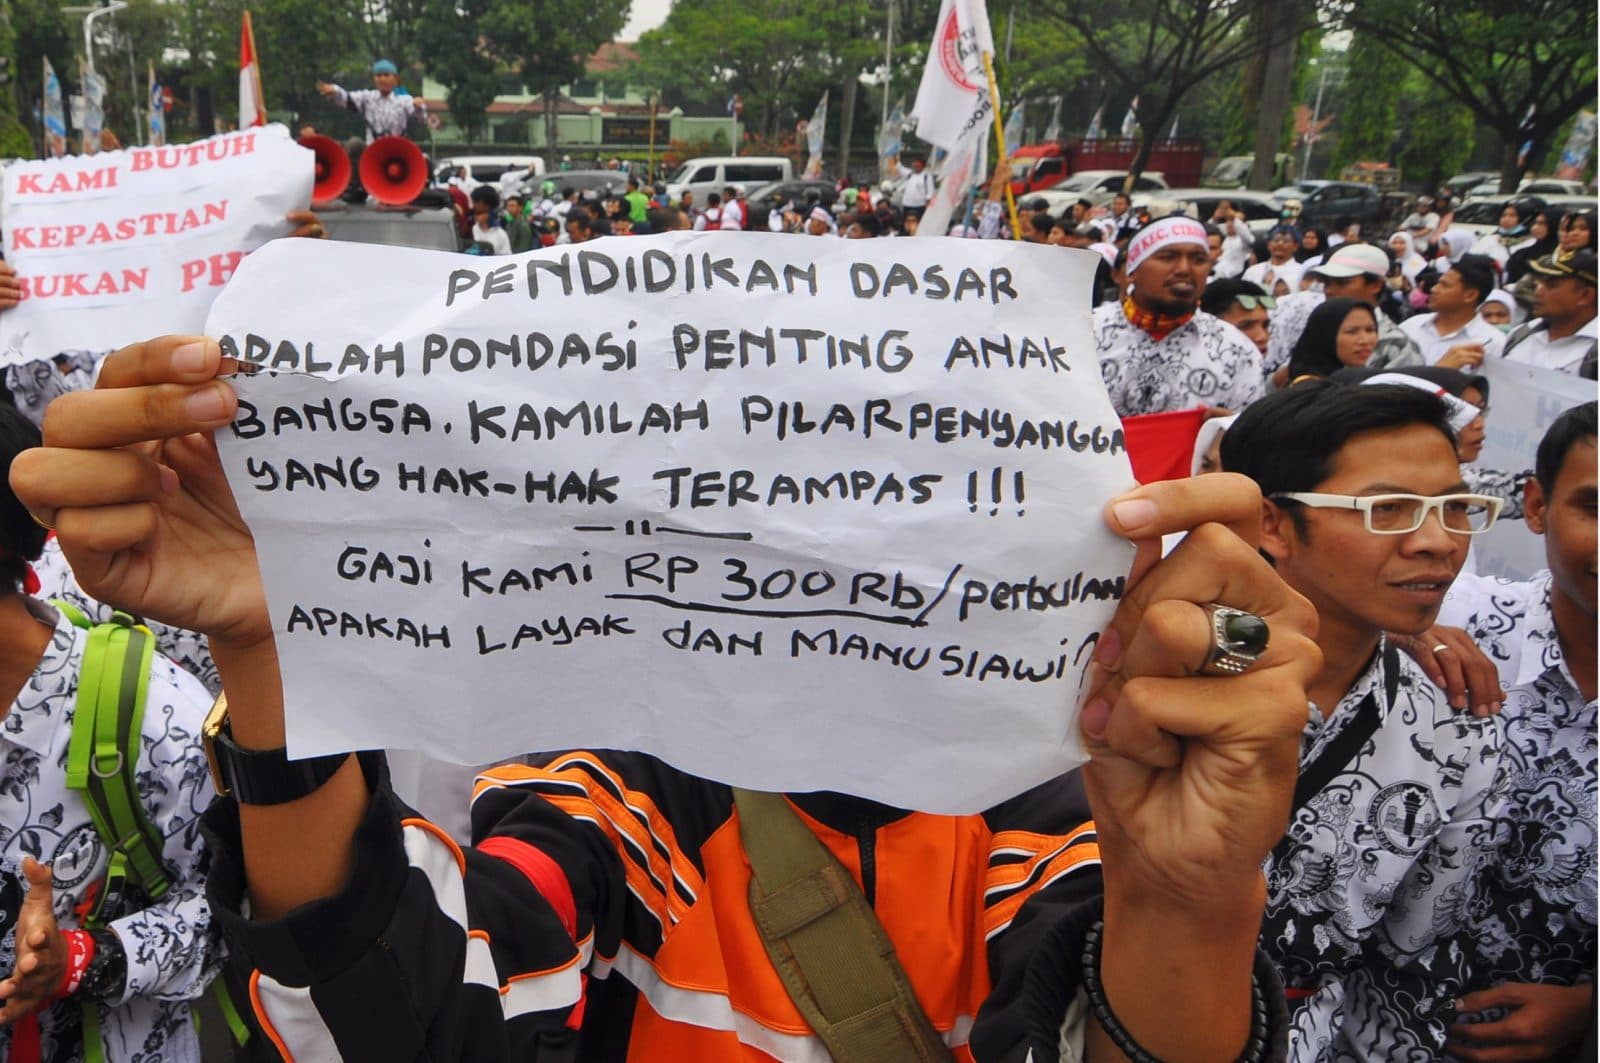 KAMI BUTUH
KEPASTIAN
BUKAN PH
PENDIDIKAN DASAR
ADALAH PONDASI PENTING ANAK
BANGSA. KAMILAH PILAR PENYANGGA
YANG HAK-HAK TERAMPAS !!!
GAJI KAMI RP 300 Rb/perbulan
APAKAH LAYAK dAN MANUSIAWI?